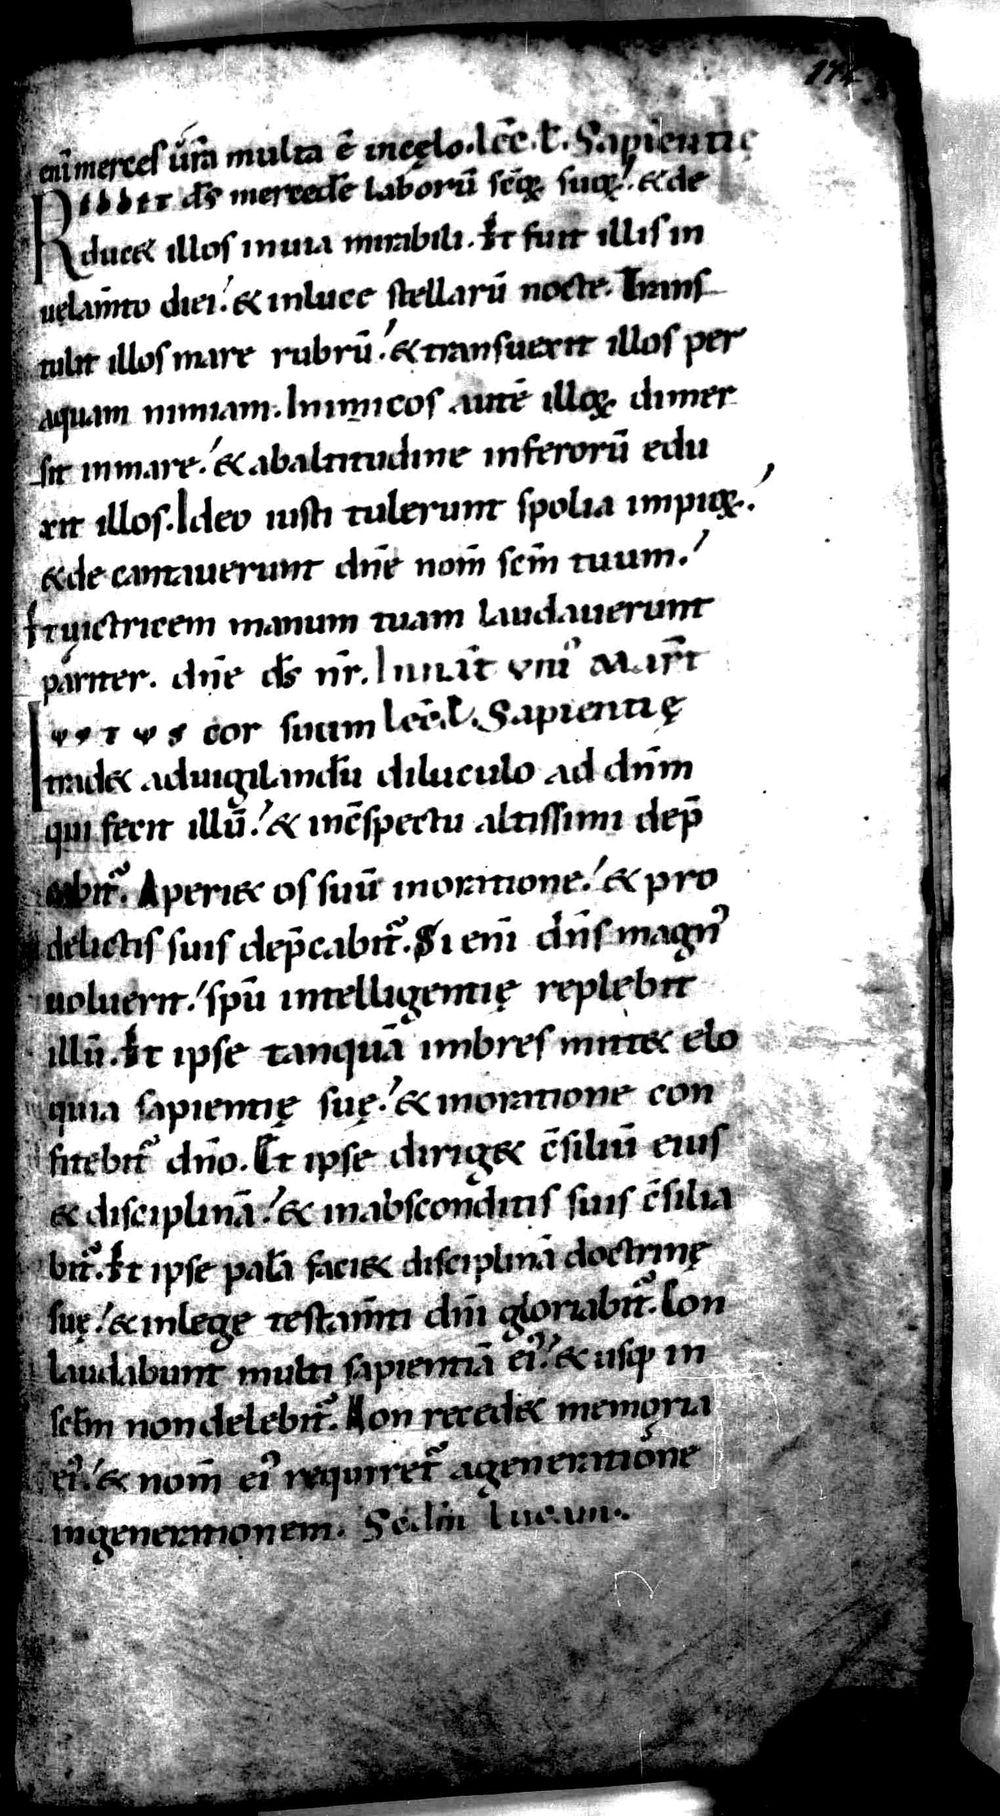 eni merces ur̄a multa ē incęlo. lec̄c. l. Sapientię
Reddet ds̄ mercedē laborū sc̄oꝝ suoꝝ. & de
duc& illos inuia mirabili. Et fuit illis in
uelam̄to diei. & inluce stellarū nocte. Trans
tulit illos mare rubrū. & transuexit illos per
aquam nimiam. Inimicos autē illoꝝ dimer
sit inmare. & abaltitudine inferorū edu
xit illos. Ideo iusti tulerunt spolia impioꝝ.
& de cantauerunt dn̄e nom̄ sc̄m tuum.
Et uictricem manum tuam laudauerunt
pariter. dn̄e ds̄ nr̄. In nat̄ uniꝰ mart̄
Iustus cor suum lec̄. l. Sapientię
trad& aduigilandū diluculo ad dn̄m
qui fecit illū. & inc̄spectu altissimi dep̄
cabit᷑. Aperi& os suū inoratione. & pro
delictis suis dep̄cabit᷑. Si eni dn̄s magnꝰ
uoluerit. spū intelligentię replębit
illū. Et ipse tanquā imbres mitt& elo
quia sapientię suę. & inoratione con
fitebit᷑ dn̄o. Et ipse dirig& c̄siliū eius
& disciplinā. & inabsconditis suis c̄silia
bit᷑. Et ipse palā faci& disciplinā doctrinę
suę. & inlege testam̄ti dn̄i gloriabit᷑. Con
laudabunt multi sapientiā eiꝰ. & usqꝫ in
sc̄lm non delebit᷑. Non reced& memoria
eiꝰ. & nom̄ eiꝰ requiret᷑ ageneratione
ingenerationem. Scdm̄ Lucam.